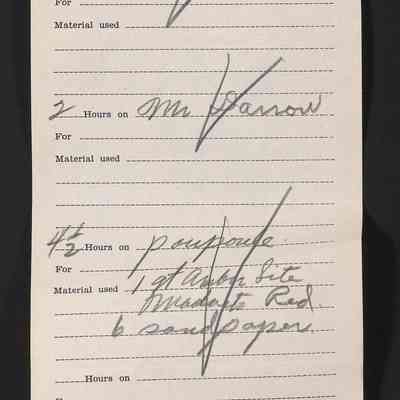 For
Material used
2 Hours on Mr Darrow
For
Material used
4½ Hours on
For
Material used 1 qt Amber Site
Red
6 sandpaper
Hours on